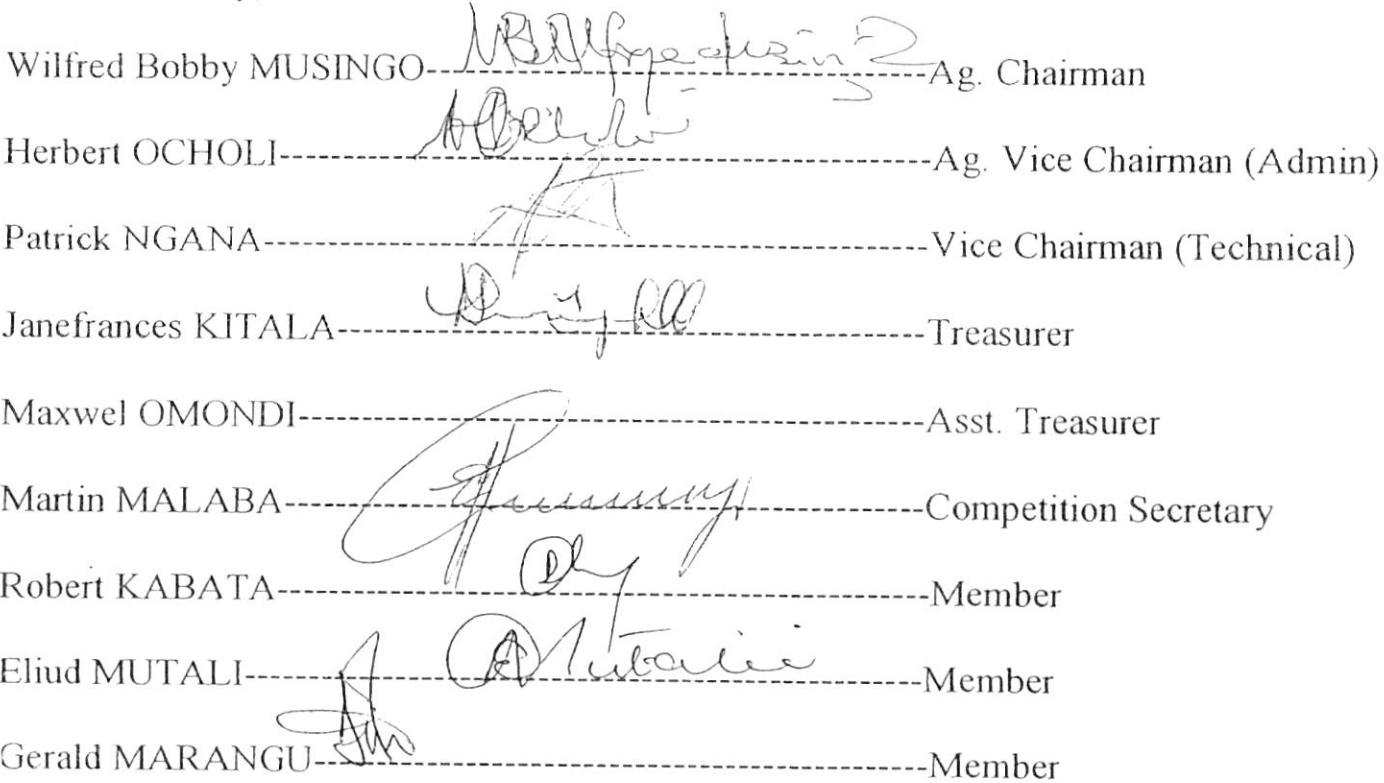 Wilfred Bobby MUSINGO--------------------Ag. Chairman
Herbert OCHOLI--------------------Ag. Vice Chairman (Admin)
Patrick NGANA--------------------Vice Chairman (Technical)
Janefrances KITALA--------------------Treasurer
Maxwel OMONDI--------------------Asst. Treasurer
Martin MALABA--------------------Competition Secretary
Robert KABATA--------------------Member
Eliud MUTALI--------------------Member
Gerald MARANGU--------------------Member